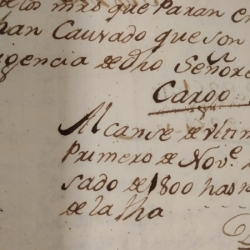 de los mrs que paran e
han Cauvado que son
igencia de dho Señor
Cargo
Alcanse de ultim
Primero de Nove.
sado de 1800 has
de la fha